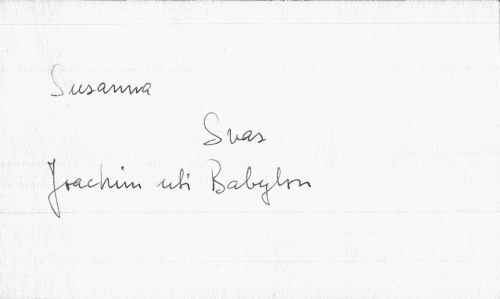 Susanna
Svar
Joachim uti Babylon